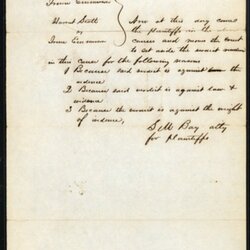 Irwin Emerson
Harriet Scott } Now at this day comes
vs the plaintiffs in the
Irene Emerson cause and move the court
to set aside the verdict
in this cause for the following reasons
1 Because said verdict is against the
evidence
2 Because said verdict is against law &
evidence
3 Because the verdict is against the weight
of evidence,
S M Bay atty
for plaintiffs